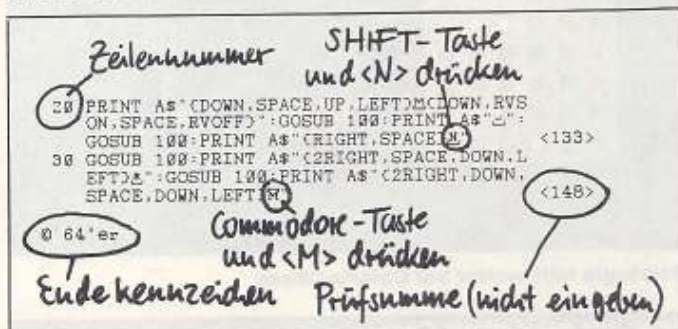 Zeilennummer
SHIFT-Taste
und <N> drücken
20 PRINT A$"{DOWN,SPACE,UP,LEFT}M{DOWN,RVS
ON,SPACE,RVOFF}":GOSUB 100:PRINT A$"
GOSUB 100:PRINT A$"{RIGHT,SPACE}N" <133>
30 GOSUB 100:PRINT A$"{2RIGHT,SPACE,DOWN,L
EFT}":GOSUB 100:PRINT A$"{2RIGHT,DOWN,
SPACE,DOWN,LEFT}M" <148>
© 64'er
Commodore-Taste
und <M> drücken
Endekennzeichen
Prüfsumme (nicht eingeben)